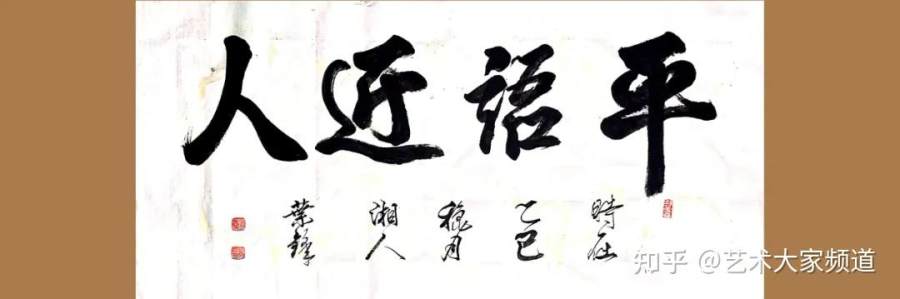 平語近人
時在
乙巳
月
湘人
葉鋒
知乎 @艺术大家频道